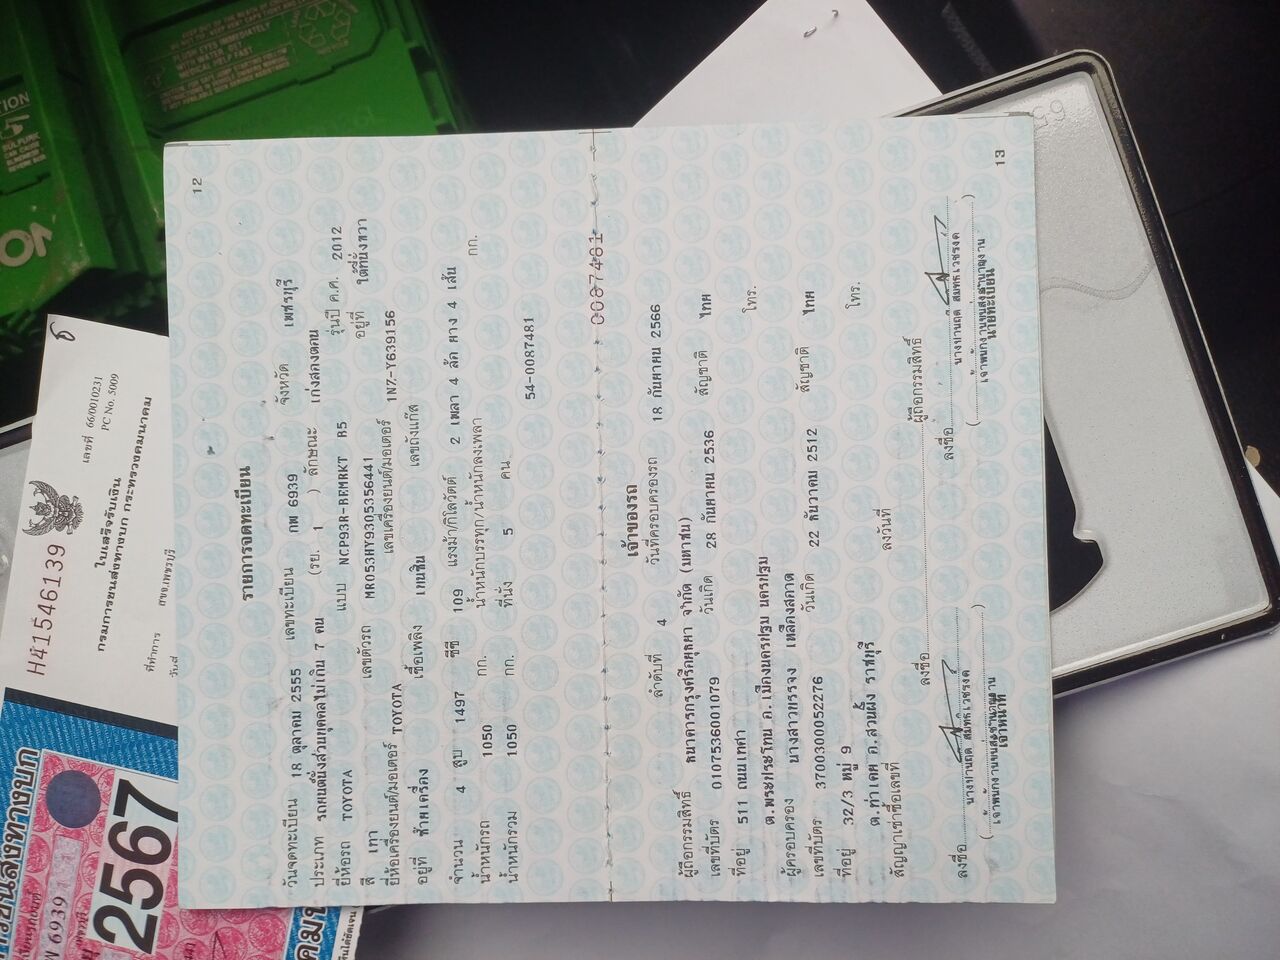 12
รายการจดทะเบียน
วันจดทะเบียน 18 ตุลาคม 2555 เลขทะเบียน กพ 6939 จังหวัด เพชรบุรี
ประเภท รถยนต์นั่งส่วนบุคคลไม่เกิน 7 คน (รย. 1 ) ลักษณะ เก๋งสองตอน
ยี่ห้อรถ TOYOTA แบบ NCP93R-BEMRKT R5 รุ่นปี ค.ศ. 2012
สี เทา เลขตัวรถ MR053HY9305356441 อยู่ที่ ใต้ที่นั่งขวา
ยี่ห้อเครื่องยนต์/มอเตอร์ TOYOTA เลขเครื่องยนต์/มอเตอร์ 1NZ-Y639156
อยู่ที่ ซ้ายเครื่อง เชื้อเพลิง เบนซิน เลขถังแก๊ส
จำนวน 4 สูบ 1497 ซีซี 109 แรงม้า/กิโลวัตต์ 2 เพลา 4 ล้อ ยาง 4 เส้น
น้ำหนักรถ 1050 กก. น้ำหนักบรรทุก/น้ำหนักลงเพลา กก.
น้ำหนักรวม 1050 กก. ที่นั่ง 5 คน
54-0087481
0087481
เจ้าของรถ
ลำดับที่ 4 วันที่ครอบครองรถ 18 กันยายน 2566
ผู้ถือกรรมสิทธิ์ ธนาคารกรุงศรีอยุธยา จำกัด (มหาชน)
เลขที่บัตร 0107536001079 วันเกิด 28 กันยายน 2536 สัญชาติ ไทย
ที่อยู่ 511 ถนนเพชร โทร.
ต.พระประโทน อ.เมืองนครปฐม นครปฐม
ผู้ครอบครอง นางสาวบรรจง เหลืองสอาด
เลขที่บัตร 3700300052276 วันเกิด 22 ธันวาคม 2512 สัญชาติ ไทย
ที่อยู่ 32/3 หมู่ 9 โทร.
ต.ท่าเคย อ.สวนผึ้ง ราชบุรี
สัญญาเช่าซื้อเลขที่ ลงวันที่
ลงชื่อ ผู้ถือกรรมสิทธิ์
ลงชื่อ ลงชื่อ
เจ้าพนักงานขนส่งชำนาญงาน เจ้าพนักงานขนส่งชำนาญงาน
เจ้าหน้าที่ นายทะเบียน
13
H41546139
เลขที่ 66/0010231
PC No. S009
ใบเสร็จรับเงิน
กรมการขนส่งทางบก กระทรวงคมนาคม
ที่ทำการ สขจ.เพชรบุรี
2567
6939